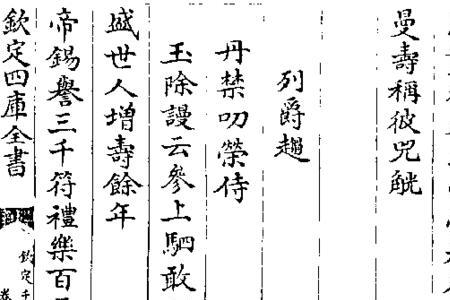 曼壽稱彼兕觥
列爵趨
丹禁叨榮侍
玉除謾云參上駟敢
盛世人增壽餘年
帝錫譽三千符禮樂百
欽定四庫全書
欽定千